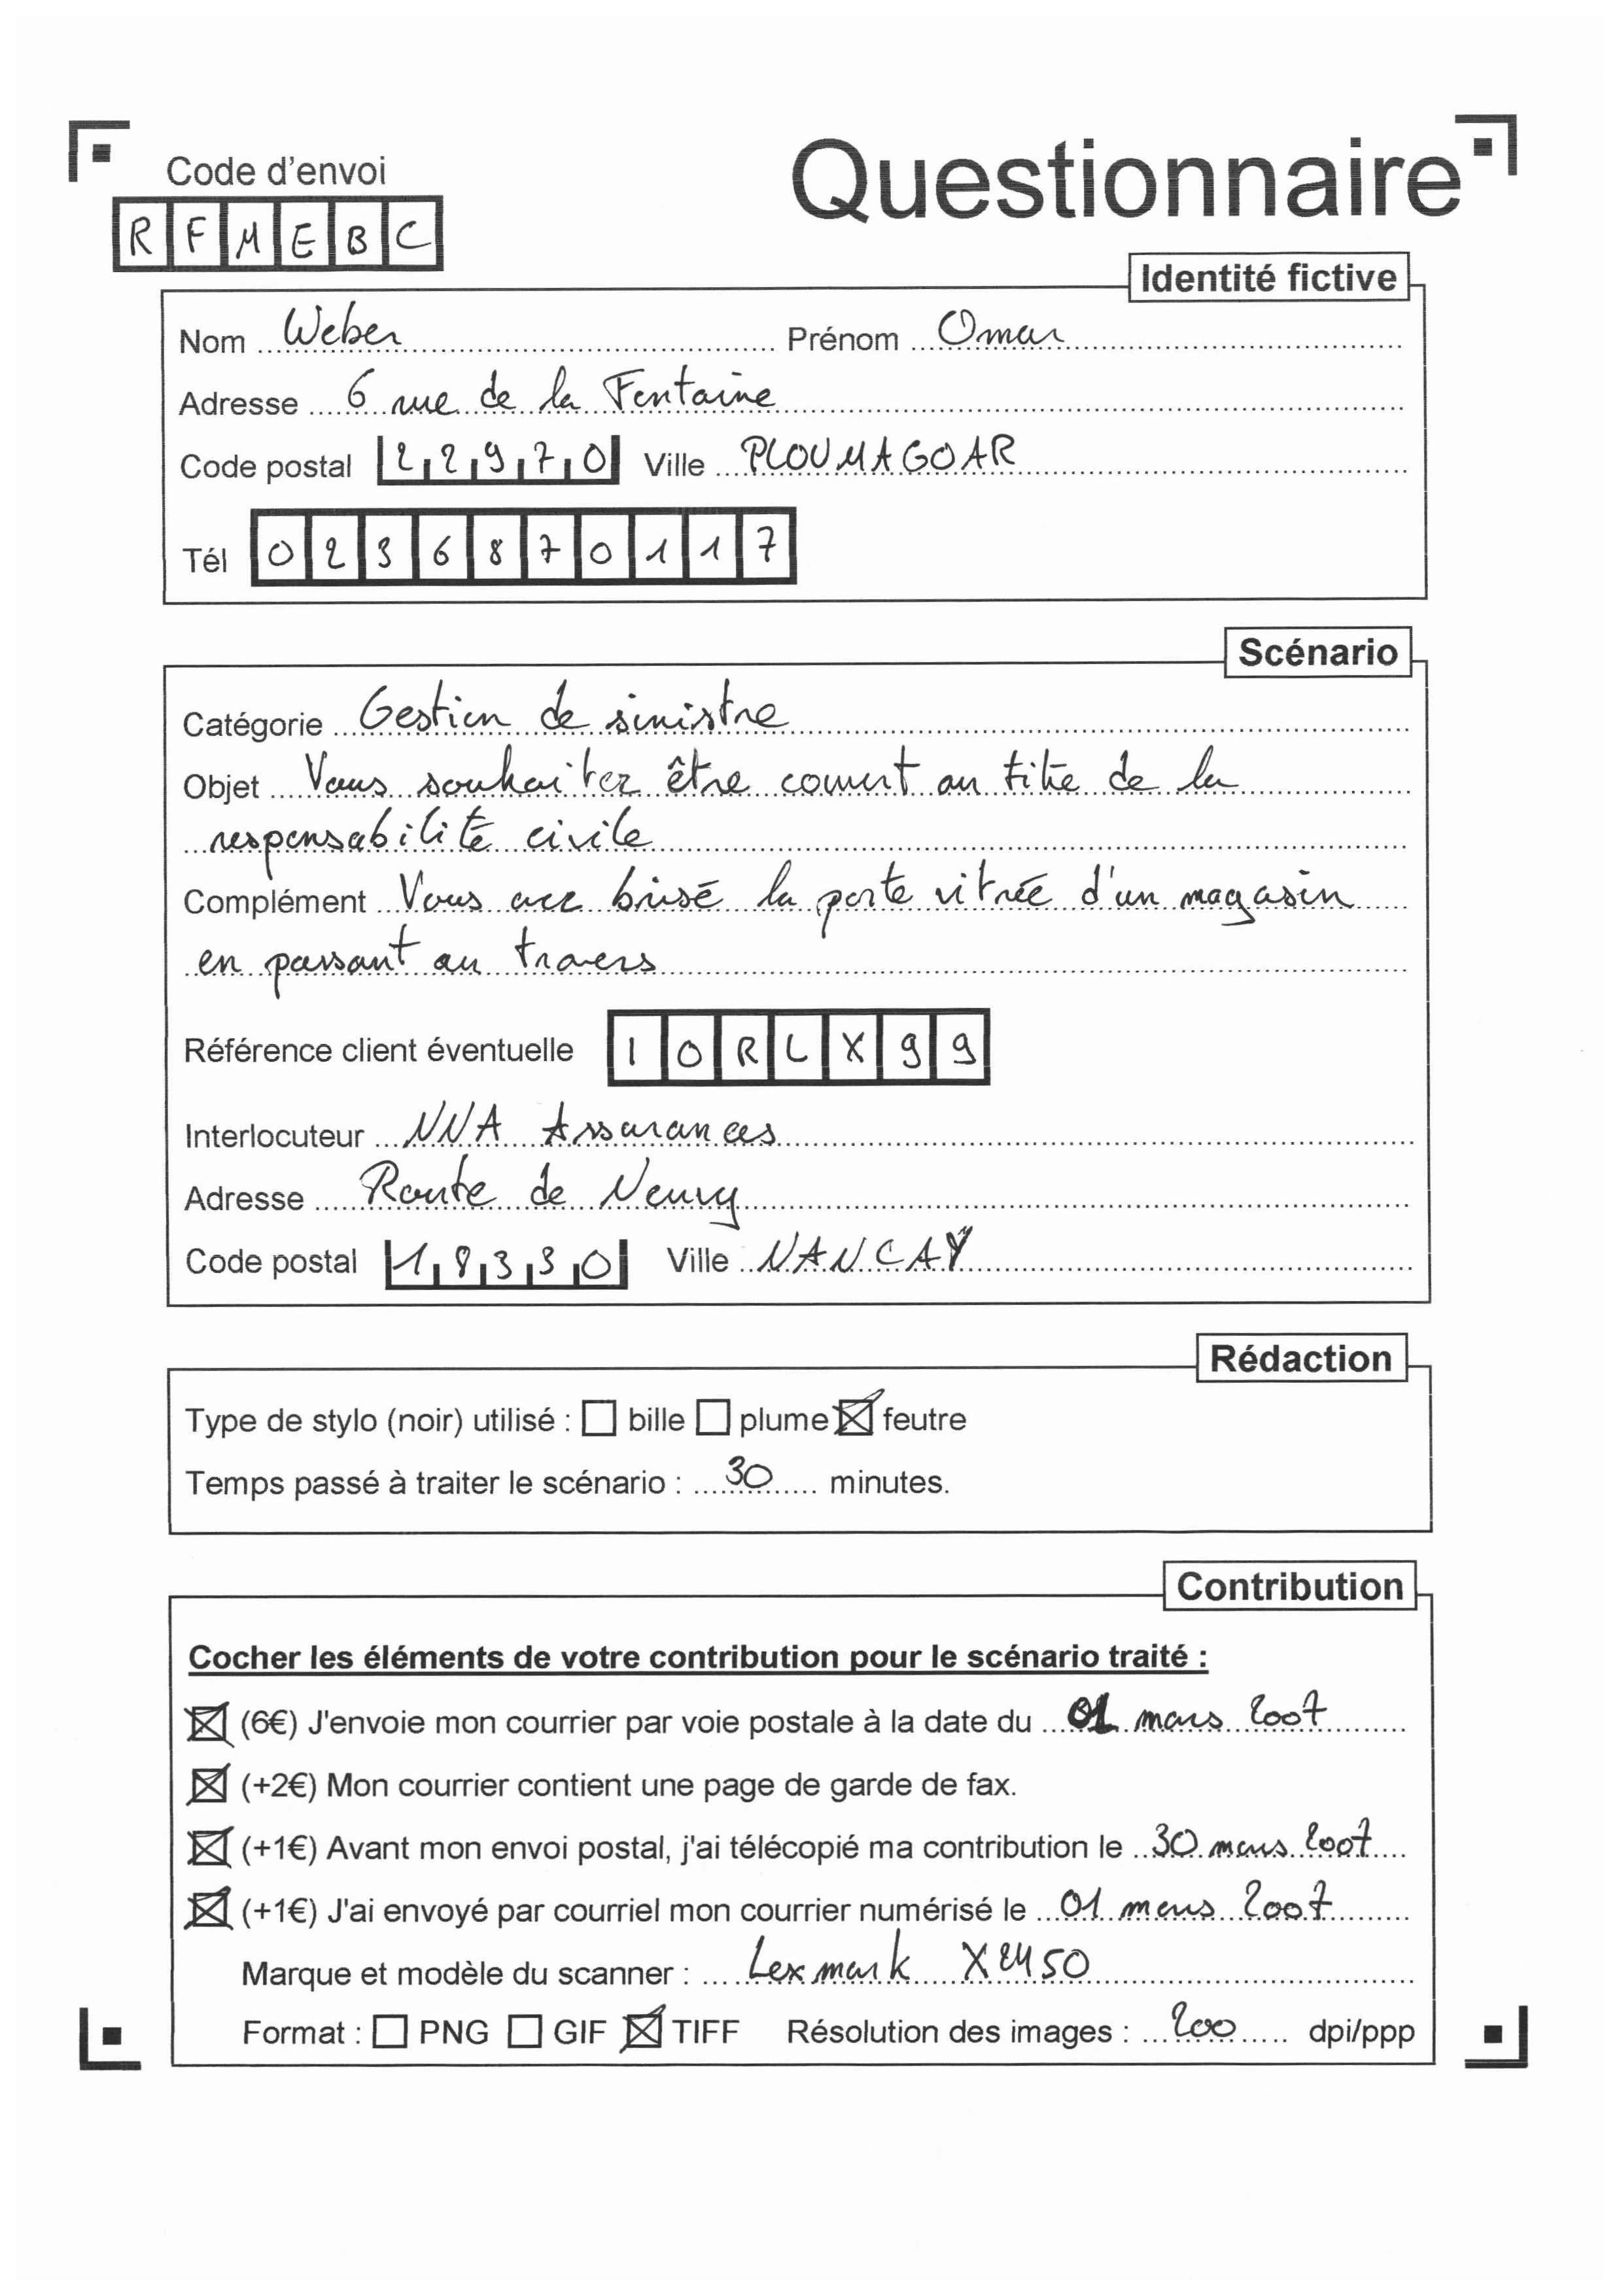 Code d'envoi
Questionnaire
RFMEBC
Identité fictive
Nom Weber Prénom Omar
Adresse 6 rue de la Fontaine
Code postal 22970 Ville PLOUMAGOAR
Tél 0236870117
Scénario
Catégorie Gestion de sinistre
Objet Vous souhaitez être couvert au titre de la
responsabilité civile
Complément Vous avez brisé la porte vitrée d'un magasin
en passant au travers
Référence client éventuelle IORLX99
Interlocuteur NNA Assurances
Adresse Route de Neuvy
Code postal 18330 Ville NANCAY
Rédaction
Type de stylo (noir) utilisé : bille plume feutre
Temps passé à traiter le scénario : 30 minutes.
Contribution
Cocher les éléments de votre contribution pour le scénario traité :
(6€) J'envoie mon courrier par voie postale à la date du 01 mars 2007
(+2€) Mon courrier contient une page de garde de fax.
(+1€) Avant mon envoi postal, j'ai télécopié ma contribution le 30 mars 2007
(+1€) J'ai envoyé par courriel mon courrier numérisé le 01 mars 2007
Marque et modèle du scanner : Lexmark X2450
Format : PNG GIF TIFF Résolution des images : 200 dpi/ppp